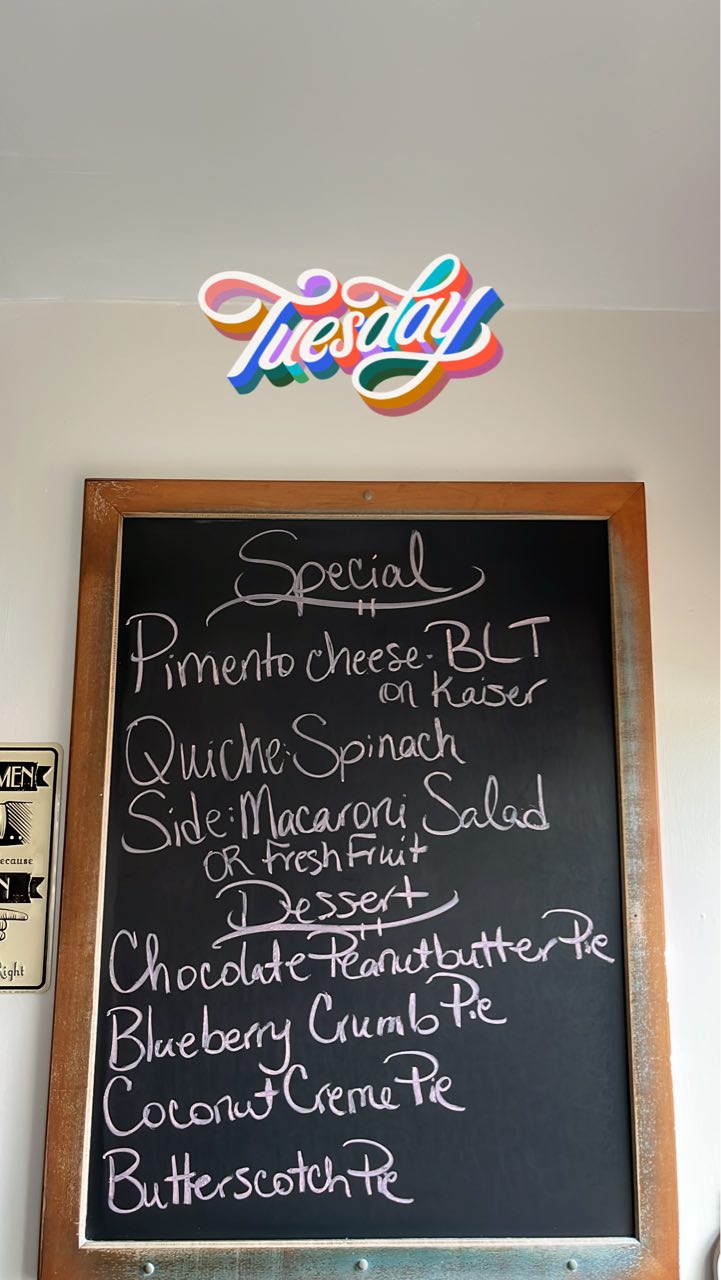 Tuesday
Special
Pimento cheese-BLT
on Kaiser
Quiche: Spinach
Side: Macaroni Salad
OR Fresh Fruit
Dessert
Chocolate Peanutbutter Pie
Blueberry Crumb Pie
Coconut Creme Pie
Butterscotch Pie
MEN
ecause
N
Right